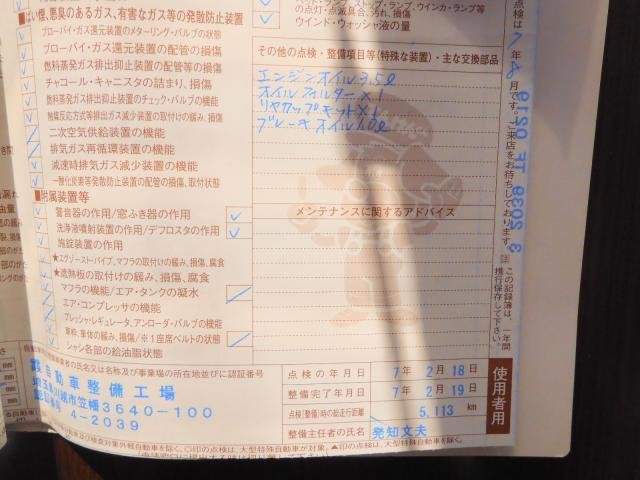 ■ばい煙、悪臭のあるガス、有害なガス等の発散防止装置
ブローバイ・ガス還元装置のメターリング・バルブの状態
ブローバイ・ガス還元装置の配管の損傷
燃料蒸発ガス排出抑止装置の配管等の損傷
チャコール・キャニスタの詰まり、損傷
燃料蒸発ガス排出抑止装置のチェック・バルブの機能
触媒反応方式等排出ガス減少装置の取付けの緩み、損傷
二次空気供給装置の機能
排気ガス再循環装置の機能
減速時排気ガス減少装置の機能
一酸化炭素等発散防止装置の配管の損傷、取付状態
■附属装置等
警音器の作用/窓ふき器の作用
洗浄液噴射装置の作用/デフロスタの作用
施錠装置の作用
★エグゾースト・パイプ、マフラの取付けの緩み、損傷、腐食
★遮熱板の取付けの緩み、損傷、腐食
マフラの機能/エア・タンクの凝水
エア・コンプレッサの機能
プレッシャ・レギュレータ、アンローダ・バルブの機能
車枠、車体の緩み、損傷/※1座席ベルトの状態
シャシ各部の給油脂状態
ランプ、ウインカ・ランプ等
の点灯・点滅具合、汚れ、損傷
ウインド・ウォッシャ液の量
その他の点検・整備項目等(特殊な装置)・主な交換部品
エンジンオイル3.5ℓ
オイルフィルター×1
リヤカップキット×1
ブレーキオイル1.0ℓ
メンテナンスに関するアドバイス
点検は7年8月です。ご来店をお待ちしております。
この記録簿は、一年間
携行保存して下さい。
3 2039 TF 0219
の氏名又は名称及び事業場の所在地並びに認証番号
自動車整備工場
市笠幡3640-100
4-2039
点検の年月日 7年2月18日
整備完了年月日 7年2月19日
点検(整備)時の総走行距離 5,113 km
整備主任者の氏名 発知文夫
使用者用